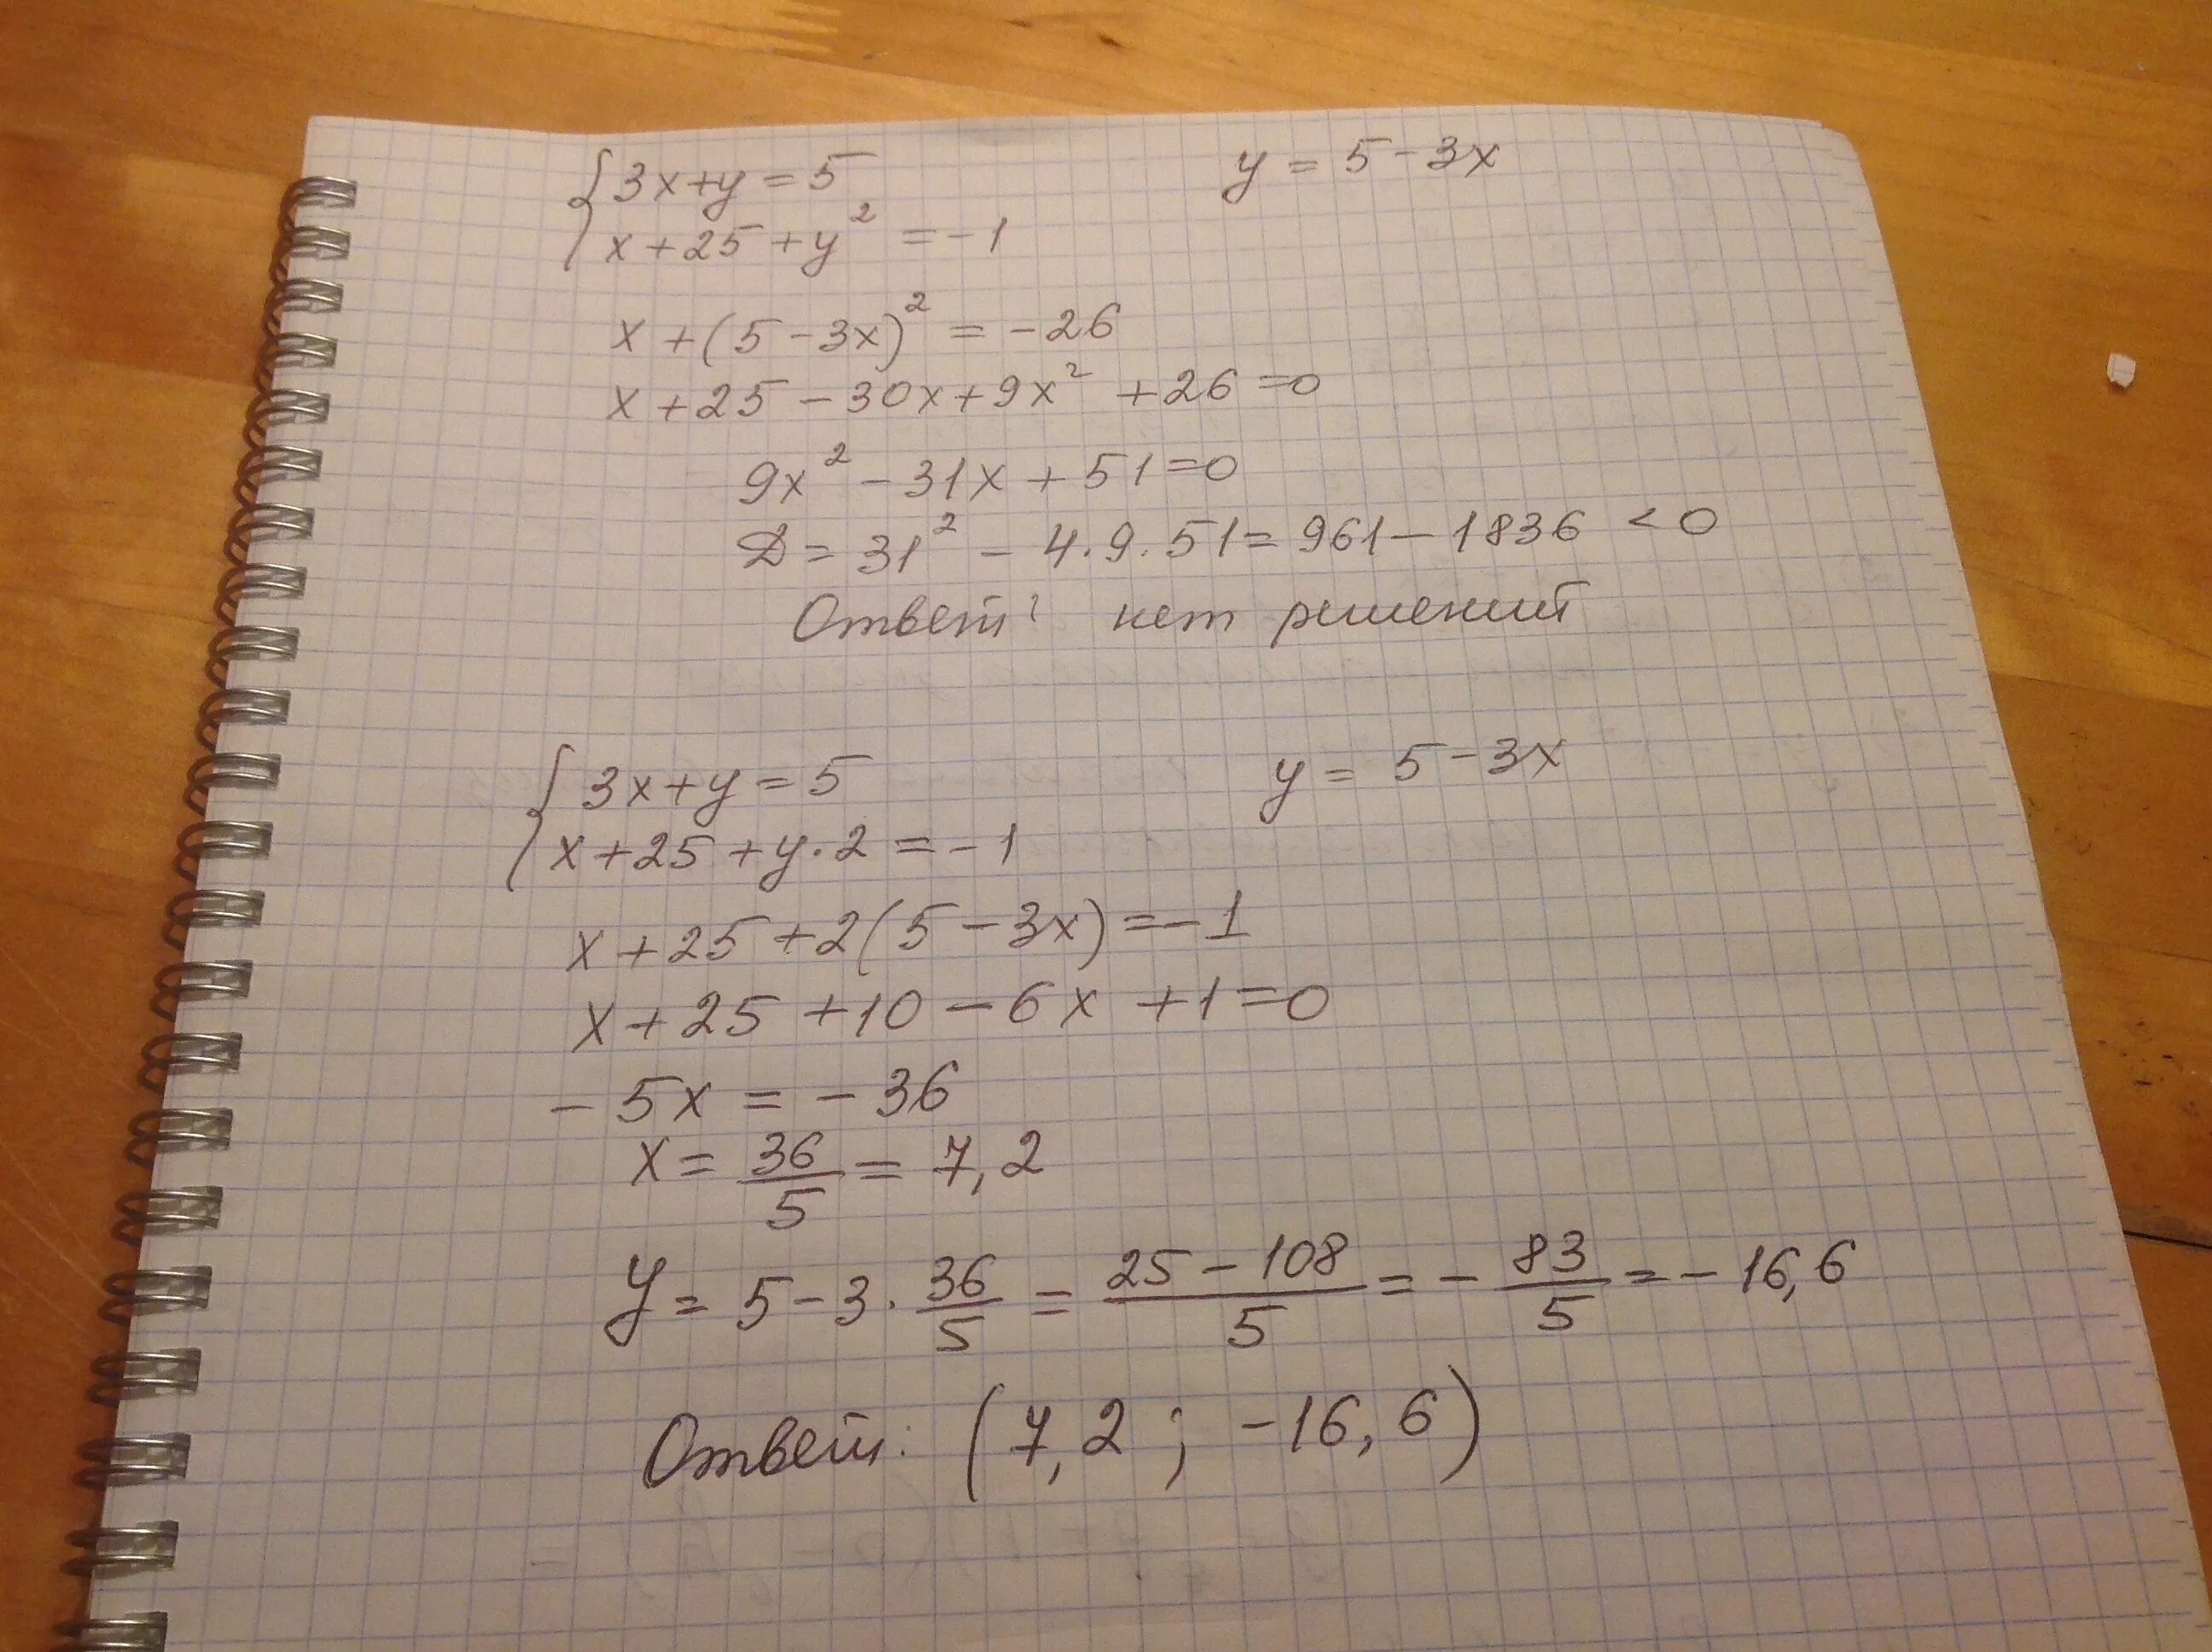 { 3x+y=5    y = 5-3x
x+25+y² = -1
x+(5-3x)² = -26
x+25-30x+9x² +26=0
9x² -31x+51=0
D = 31² - 4·9·51= 961-1836 < 0
Ответ: нет решений
{ 3x+y=5    y = 5-3x
x+25+y·2 = -1
x+25+2(5-3x)=-1
x+25+10-6x+1=0
-5x = -36
x= 36/5 = 7,2
y= 5-3·36/5 = (25-108)/5 = -83/5 = -16,6
Ответ: (7,2 ; -16,6)